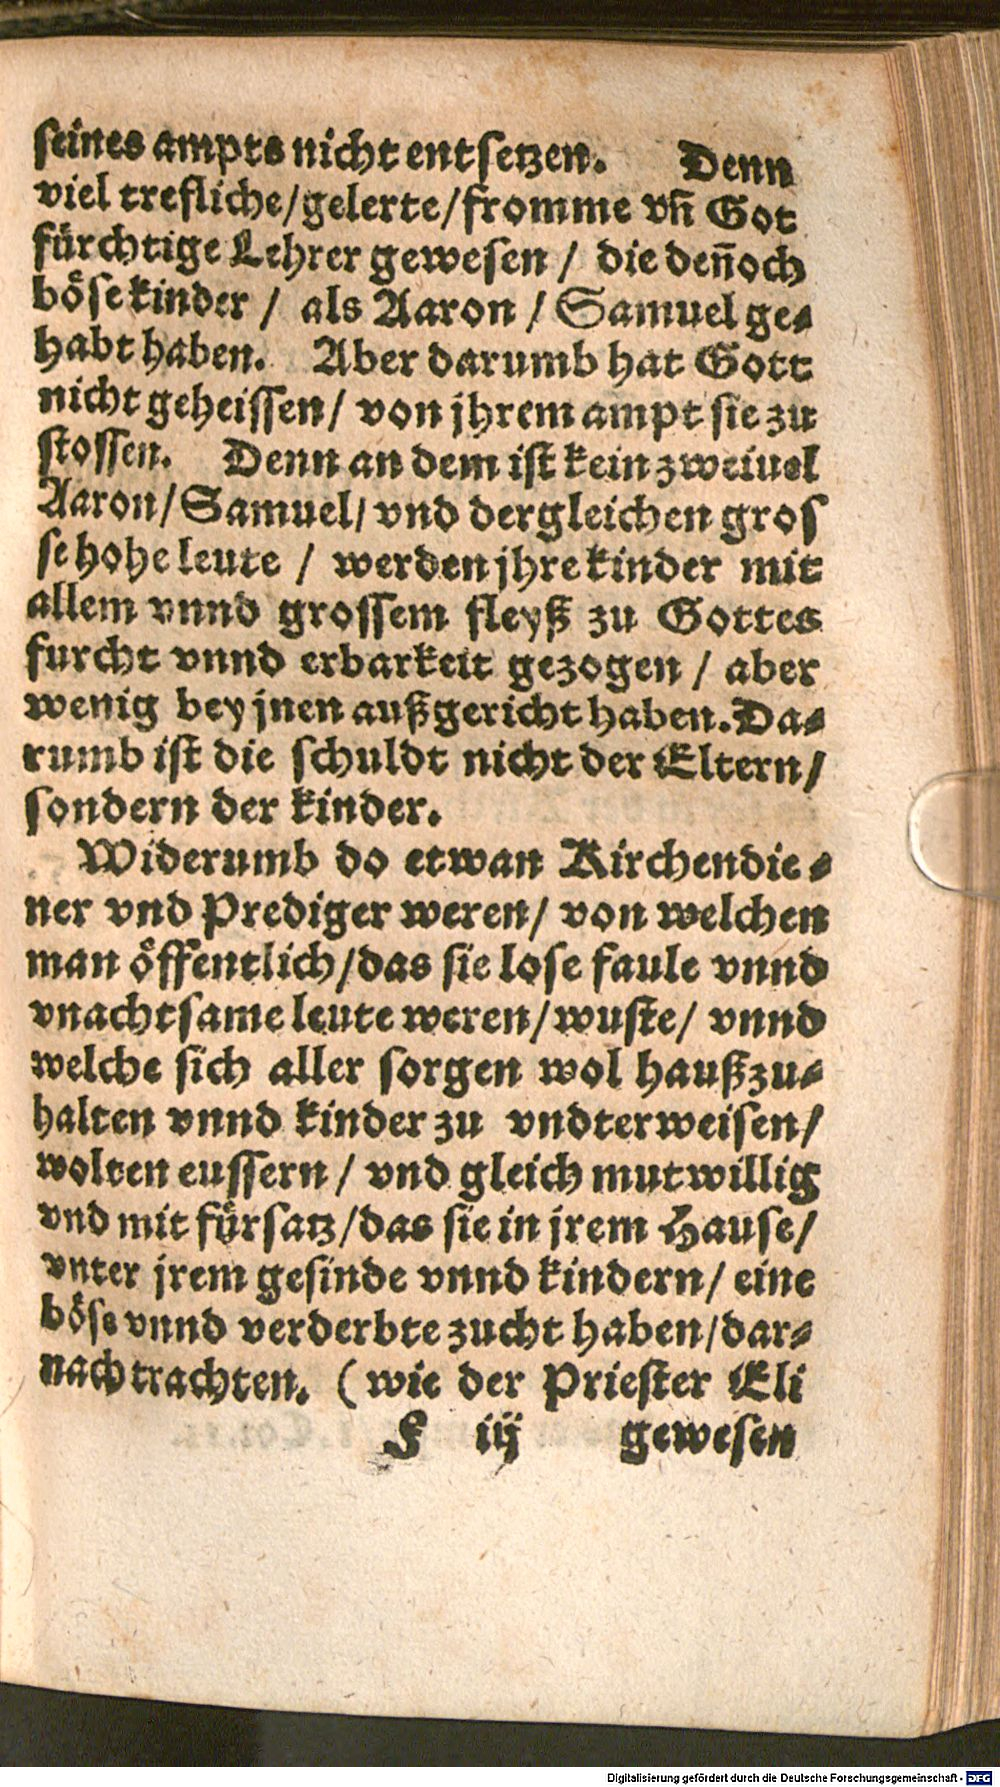 seines ampts nicht entsetzen. Denn
viel trefliche/gelerte/fromme vñ Got
fürchtige Lehrer gewesen / die deñoch
böse kinder / als Aaron / Samuel ge-
habt haben. Aber darumb hat Gott
nicht geheissen/ von jhrem ampt sie zu
stossen. Denn an dem ist kein zweiuel
Aaron/Samuel/ vnd dergleichen gros
se hohe leute / werden jhre kinder mit
allem vnnd grossem fleyß zu Gottes
furcht vnnd erbarkeit gezogen / aber
wenig bey jnen außgericht haben. Da-
rumb ist die schuldt nicht der Eltern/
sondern der kinder.
Widerumb do etwan Kirchendie-
ner vnd Prediger weren/ von welchen
man öffentlich/das sie lose faule vnnd
vnachtsame leute weren/wuste/ vnnd
welche sich aller sorgen wol haußzu-
halten vnnd kinder zu vndterweisen/
wolten eussern / vnd gleich mutwillig
vnd mit fürsatz/das sie in jrem Hause/
vnter jrem gesinde vnnd kindern/ eine
böse vnnd verderbte zucht haben/dar-
nach trachten. (wie der Priester Eli
F iij gewesen
Digitalisierung gefördert durch die Deutsche Forschungsgemeinschaft - DFG